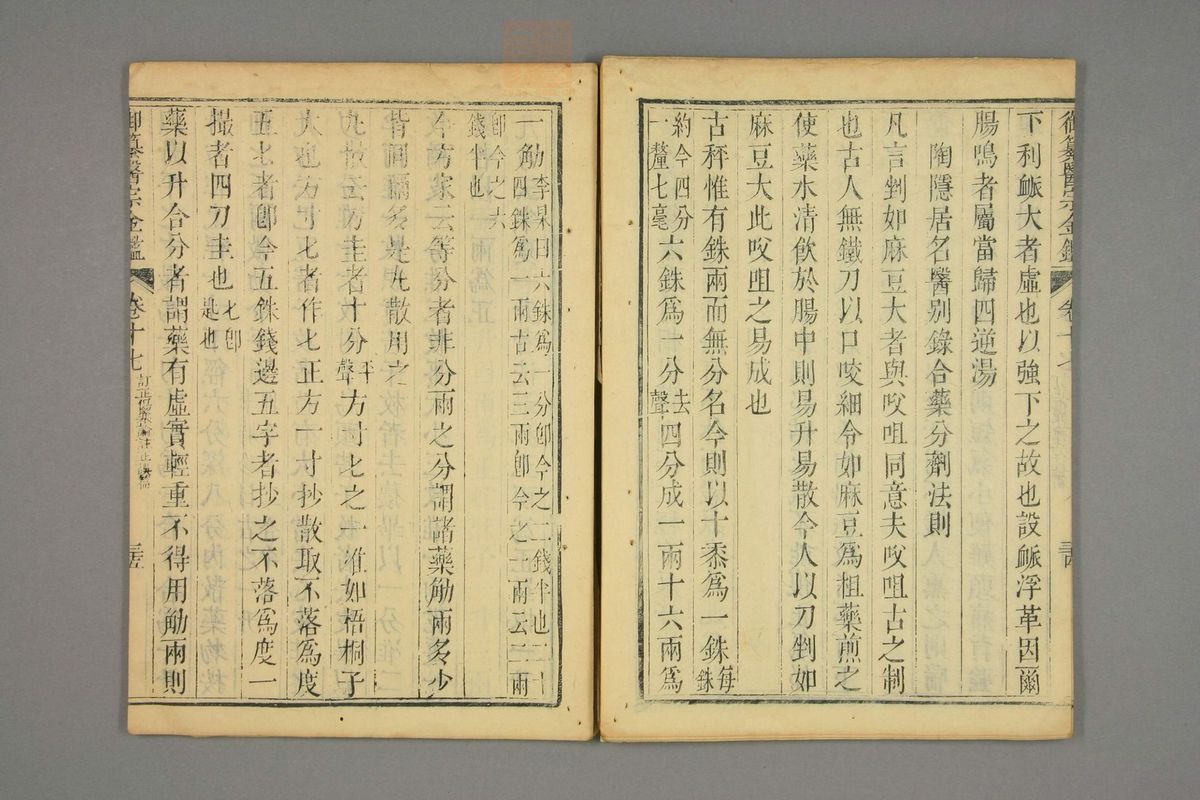 御纂醫宗金鑑 卷十七 三四
下利脈大者虛也以強下之故也設脈浮革因爾
腸鳴者屬當歸四逆湯
陶隱居名醫别錄合藥分劑法則
凡言剉如麻豆大者與㕮咀同意夫㕮咀古之制
也古人無鐵刀以口咬細令如麻豆為粗藥煎之
使藥水清飲於腸中則易升易散今人以刀剉如
麻豆大此㕮咀之易成也
古秤惟有銖兩而無分名今則以十黍為一銖每銖
約今四分一釐七毫六銖為一分去聲四分成一兩十六兩為
一觔李杲曰六銖為一分卽今之二錢半也二十四銖為一兩古云三兩卽今之一兩云二兩
卽今之六錢半也
今方家云等分者非分兩之分謂諸藥觔兩多少
皆同爾多是丸散用之
丸散云刀圭者十分平聲方寸匕之一准如梧桐子
大也方寸匕者作匕正方一寸抄散取不落為度
五匕者卽今五銖錢邊五字者抄之不落為度一
撮者四刀圭也匕卽匙也
藥以升合分者謂藥有虛實輕重不得用觔兩則
御纂醫宗金鑑 卷十七 訂正傷寒論註正誤存疑 三五